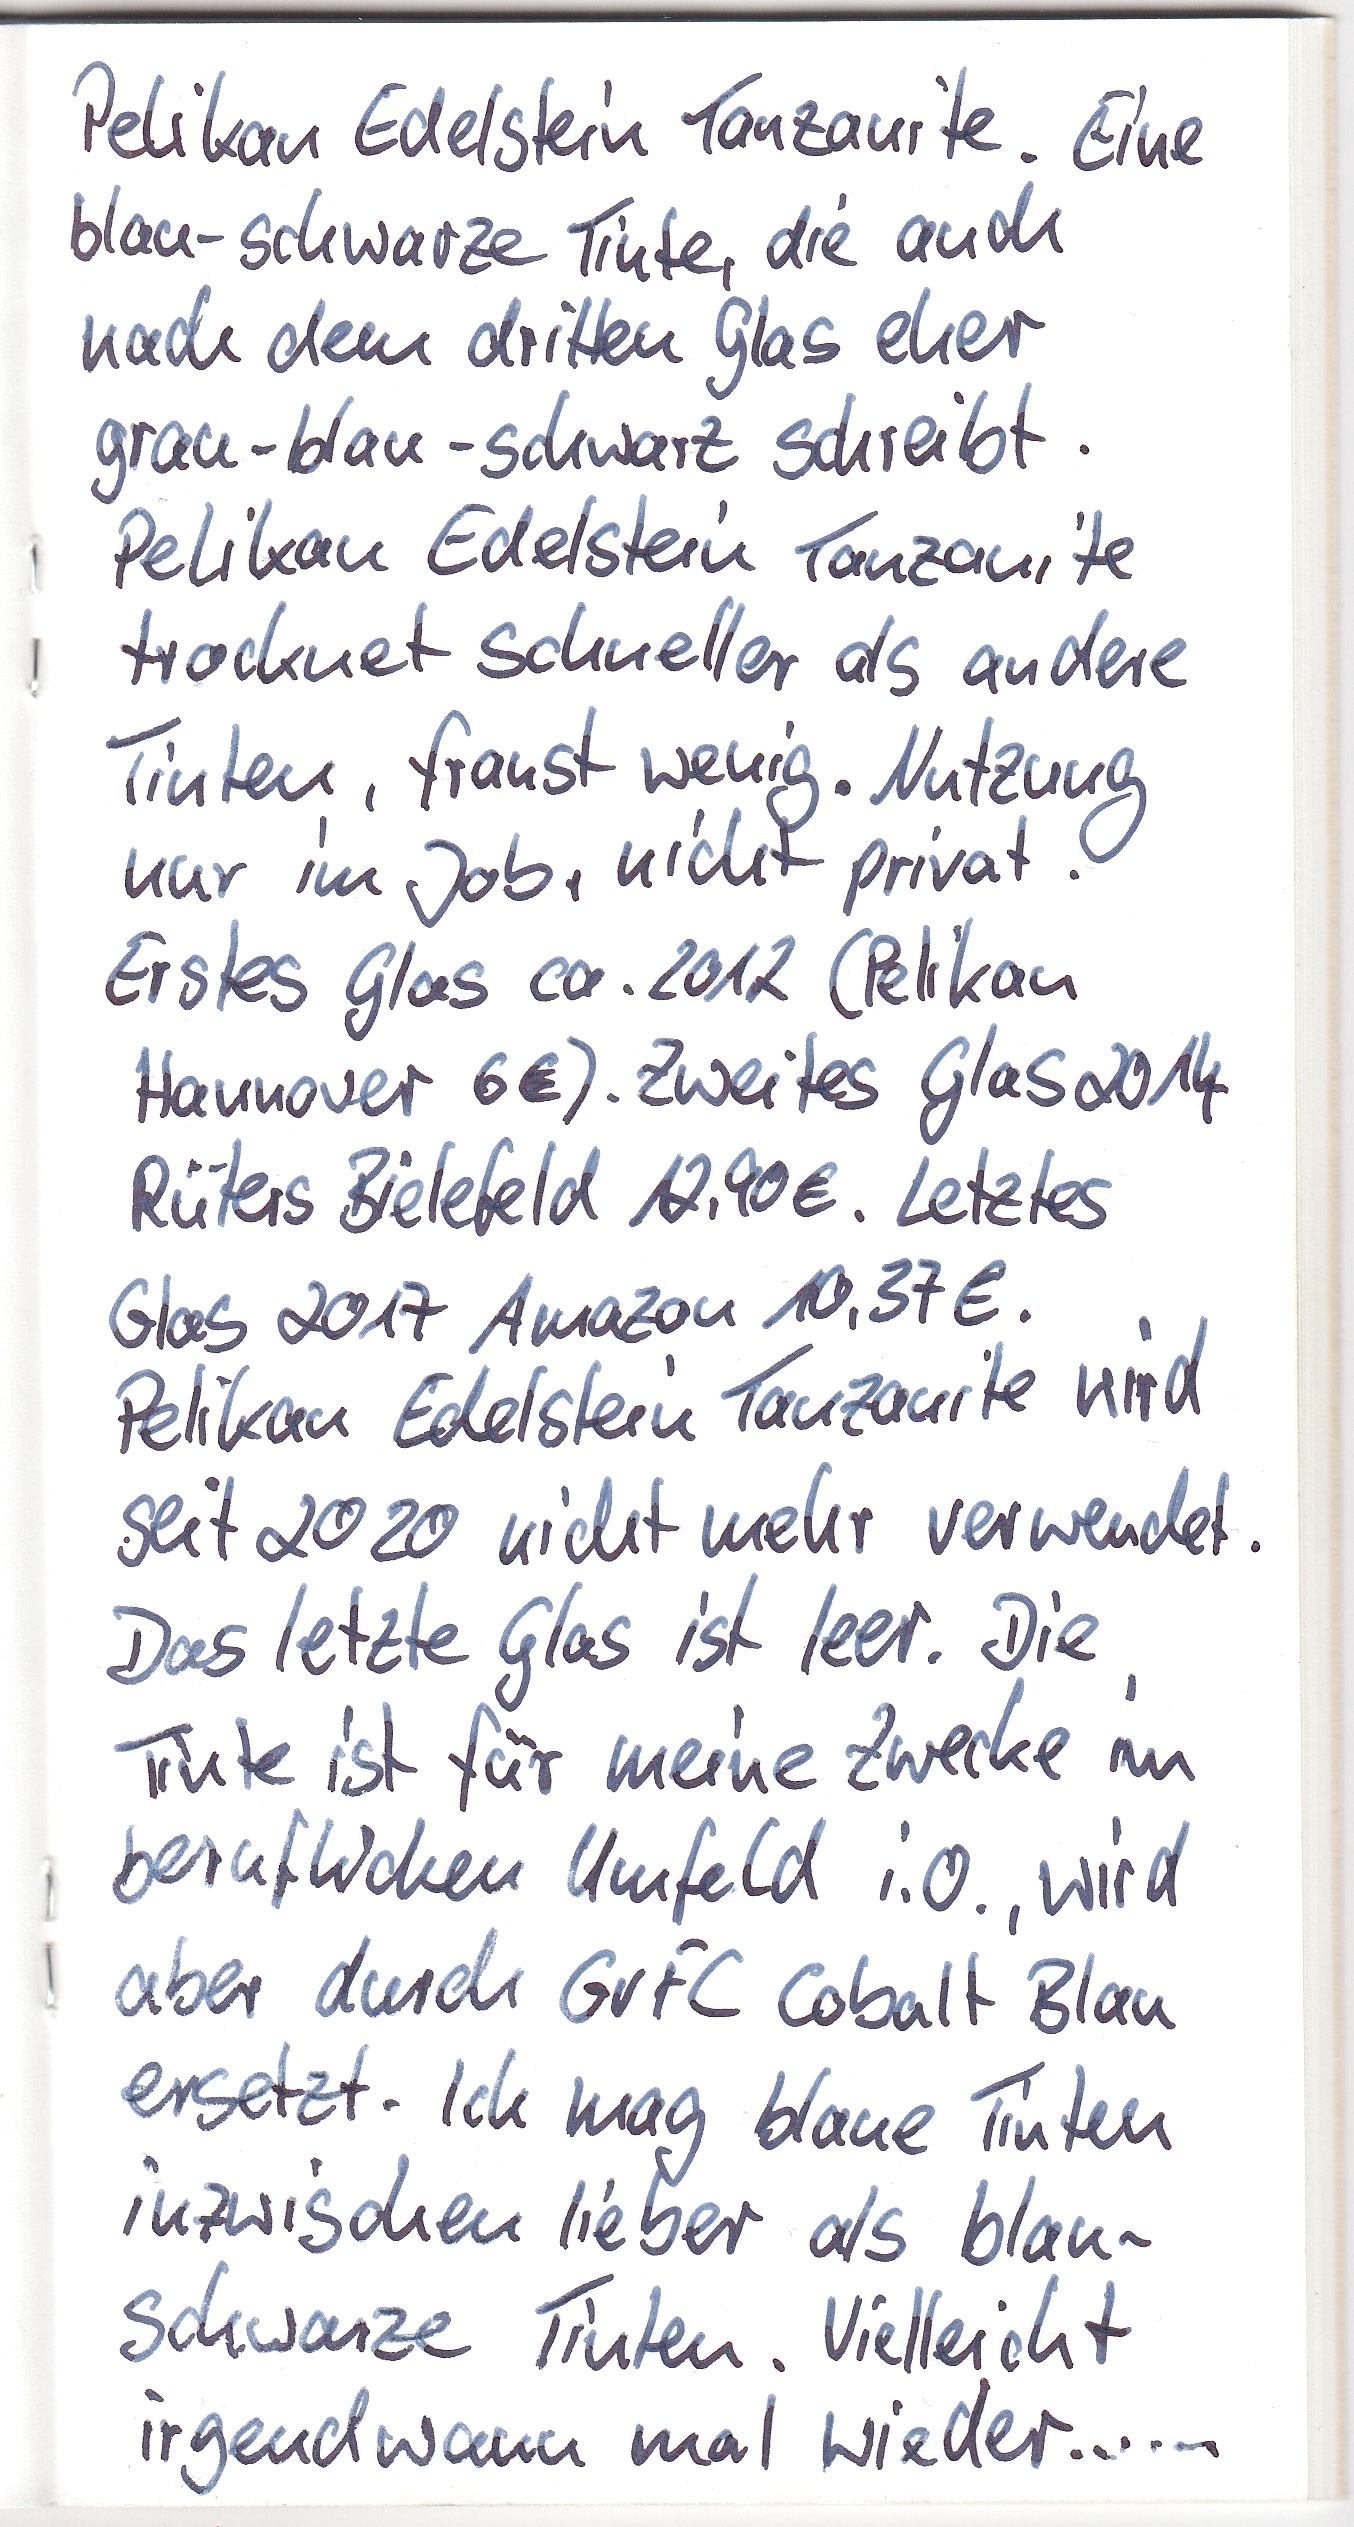 Pelikan Edelstein Tanzanite. Eine
blau-schwarze Tinte, die auch
nach dem dritten Glas eher
grau-blau-schwarz schreibt.
Pelikan Edelstein Tanzanite
trocknet schneller als andere
Tinten, franst wenig. Nutzung
nur im Job, nicht privat.
Erstes Glas ca. 2012 (Pelikan
Hannover 6€). Zweites Glas 2014
Rüters Bielefeld 12,90€. Letztes
Glas 2017 Amazon 10,37€.
Pelikan Edelstein Tanzanite wird
seit 2020 nicht mehr verwendet.
Das letzte Glas ist leer. Die
Tinte ist für meine Zwecke im
beruflichen Umfeld i.O., wird
aber durch GvFC Cobalt Blau
ersetzt. Ich mag blaue Tinten
inzwischen lieber als blau-
schwarze Tinten. Vielleicht
irgendwann mal wieder......